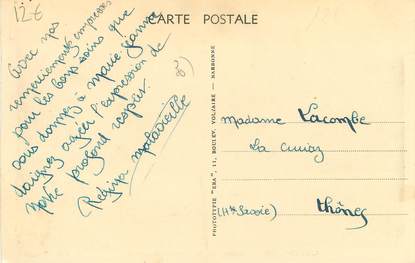 12€
CARTE POSTALE
Avec nos
remerciements empressés
pour les bons soins que
vous donnez à Marie Jeanne
daignez agréer l'expression de
notre profond respect.
Régina
PHOTOTYPIE "ERA", 11, BOULEV. VOLTAIRE - NARBONNE
Madame Lacombe
La
(Hte Savoie) Thônes